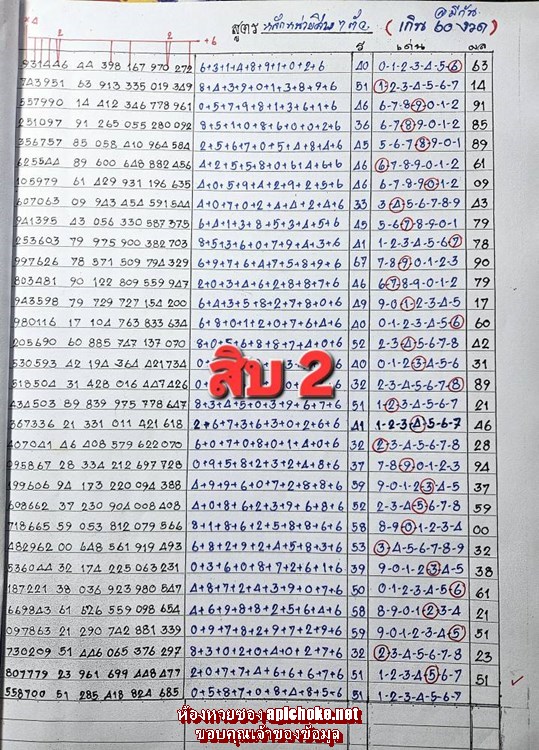 @มีกัน
สูตร หลักหน่วยสิบ 7 ตัว (เกิน 60 งวด)
2 2 +6
ร เด่น ผล
931446 44 398 167 970 272 6+3+1+4+8+9+1+0+2+6 40 0-1-2-3-4-5-6 63
743951 63 913 335 019 349 8+4+3+9+0+1+3+8+9+6 51 1-2-3-4-5-6-7 14
557990 14 412 346 778 961 0+5+7+9+8+1+3+6+1+6 46 6-7-8-9-0-1-2 91
251097 91 265 055 280 092 8+5+1+0+8+6+0+0+2+6 36 6-7-8-9-0-1-2 85
356757 85 058 410 964 584 2+5+6+7+0+5+4+8+4+6 45 5-6-7-8-9-0-1 89
625544 89 600 648 882 456 4+2+5+5+8+0+6+4+6+6 46 6-7-8-9-0-1-2 61
105979 61 429 931 196 635 4+0+5+9+4+2+9+2+5+6 46 6-7-8-9-0-1-2 09
607063 09 943 454 591 544 4+0+7+0+2+4+4+2+4+6 33 3-4-5-6-7-8-9 43
941395 43 056 330 587 375 6+4+1+3+8+5+3+4+5+6 45 5-6-7-8-9-0-1 79
253603 79 975 900 382 703 8+5+3+6+0+7+9+4+3+6 41 1-2-3-4-5-6-7 78
997626 78 571 509 794 329 6+9+7+6+4+7+5+8+9+6 67 7-8-9-0-1-2-3 90
803481 90 122 809 559 947 2+0+3+4+6+1+2+8+9+6 46 6-7-8-9-0-1-2 79
943598 79 729 727 154 200 6+4+3+5+8+2+7+8+0+6 49 9-0-1-2-3-4-5 17
980116 17 104 763 833 634 6+8+0+1+2+0+7+6+4+6 40 0-1-2-3-4-5-6 60
205690 60 885 747 137 070 52 2-3-4-5-6-7-8 42
530593 42 194 364 421 734 40 0-1-2-3-4-5-6 31
518504 31 428 016 447 426 32 2-3-4-5-6-7-8 89
434503 89 839 975 778 647 8+3+4+5+0+3+9+6+7+6 51 1-2-3-4-5-6-7 21
367336 21 331 011 421 618 2+6+7+3+6+3+0+2+6+6 41 1-2-3-4-5-6-7 46
407041 46 408 579 622 070 6+0+7+0+8+0+1+4+0+6 32 2-3-4-5-6-7-8 28
295867 28 334 212 697 728 0+9+5+8+2+3+2+4+8+6 37 7-8-9-0-1-2-3 94
499606 94 173 220 094 388 4+9+9+6+0+7+2+8+8+6 59 9-0-1-2-3-4-5 37
608662 37 230 904 008 408 4+0+8+6+2+3+9+6+8+6 52 2-3-4-5-6-7-8 59
718665 59 053 812 079 566 8+1+8+6+2+5+8+8+6+6 58 8-9-0-1-2-3-4 00
482962 00 648 561 919 493 6+8+2+9+2+4+5+8+3+6 53 3-4-5-6-7-8-9 32
536044 32 174 225 063 231 0+3+6+0+8+7+2+6+1+6 39 9-0-1-2-3-4-5 38
187221 38 036 923 980 547 4+8+7+2+4+3+9+0+7+6 50 0-1-2-3-4-5-6 61
669843 61 626 559 098 654 4+6+9+8+8+2+5+6+4+6 58 8-9-0-1-2-3-4 21
097863 21 290 742 881 339 0+9+7+8+2+9+7+2+9+6 59 9-0-1-2-3-4-5 51
730209 51 446 065 376 297 8+3+0+2+2+4+0+6+7+6 32 2-3-4-5-6-7-8 23
807779 23 961 699 448 477 2+0+7+7+4+6+6+6+7+6 51 1-2-3-4-5-6-7 51
558700 51 285 418 824 685 0+5+8+7+0+8+4+8+5+6 51 1-2-3-4-5-6-7
สิบ 2
ห้องหวยซอง aplchoke.net
ขอบคุณเจ้าของข้อมูล